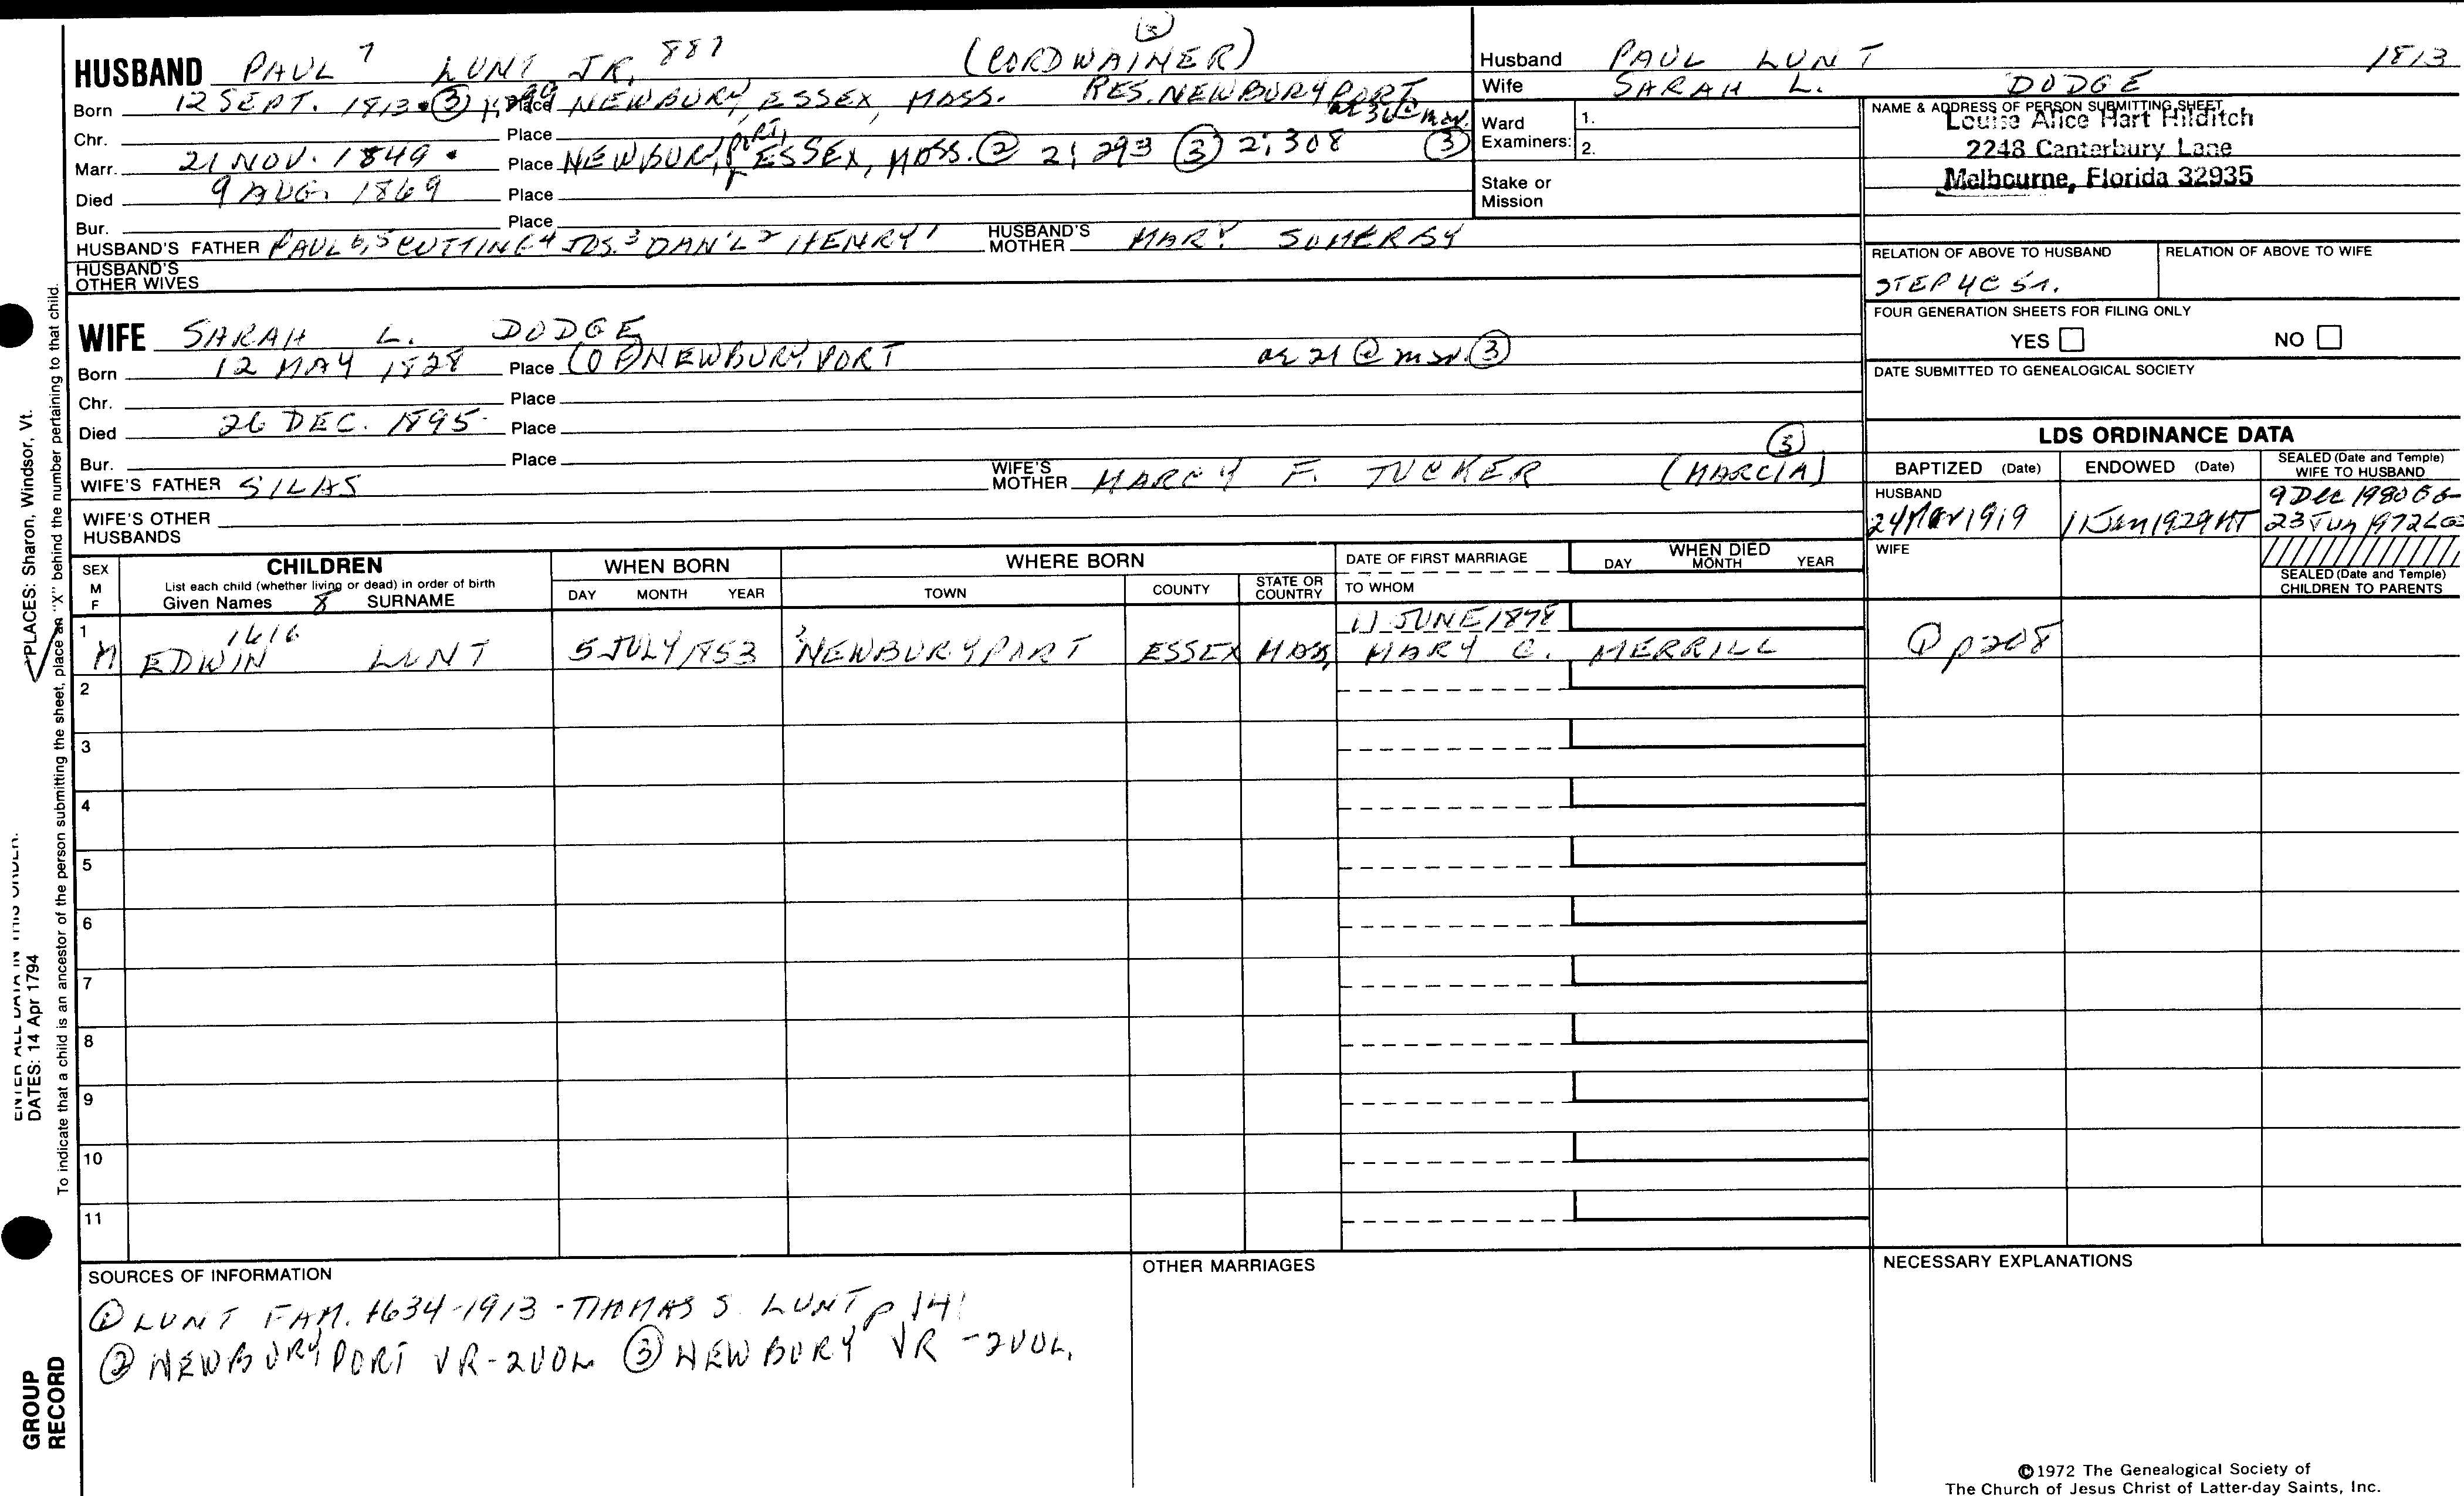 (3)
HUSBAND PAUL 7 LUNT JR. 887 (CORDWAINER)
Born 12 SEPT. 1813. (3) Place NEWBURY, ESSEX, MASS. RES. NEWBURYPORT
Chr. Place
Marr. 21 NOV. 1849. Place NEWBURYPORT, ESSEX, MASS. (2) 2:293 (3) 2:308 (3)
Died 9 AUG. 1869 Place
Bur. Place
HUSBAND'S FATHER PAUL 6,5 CUTTING 4 JOS. 3 DAN'L 2 HENRY 1 HUSBAND'S MOTHER MARY SOMERBY
HUSBAND'S OTHER WIVES
Husband PAUL LUNT 1813
Wife SARAH L. DODGE
Ward Examiners: 1. 2.
Stake or Mission
NAME & ADDRESS OF PERSON SUBMITTING SHEET
Louise Alice Hart Hilditch
2248 Canterbury Lane
Melbourne, Florida 32935
RELATION OF ABOVE TO HUSBAND RELATION OF ABOVE TO WIFE
STEP 4C
FOUR GENERATION SHEETS FOR FILING ONLY
YES NO
DATE SUBMITTED TO GENEALOGICAL SOCIETY
WIFE SARAH L. DODGE
Born 12 MAY 1828 Place (OF) NEWBURYPORT ae 21 @ mar. (3)
Chr. Place
Died 26 DEC. 1895. Place
Bur. Place
WIFE'S FATHER SILAS WIFE'S MOTHER MARCY F. TUCKER (MARCIA) (3)
WIFE'S OTHER HUSBANDS
LDS ORDINANCE DATA
BAPTIZED (Date) ENDOWED (Date) SEALED (Date and Temple) WIFE TO HUSBAND
HUSBAND 9 Dec 1980
1919 11 Jan 1929 23 Jun 1972 LG
WIFE
SEALED (Date and Temple) CHILDREN TO PARENTS
SEX M F
CHILDREN
List each child (whether living or dead) in order of birth
Given Names 8 SURNAME
WHEN BORN
DAY MONTH YEAR
WHERE BORN
TOWN COUNTY STATE OR COUNTRY
DATE OF FIRST MARRIAGE
TO WHOM
WHEN DIED
DAY MONTH YEAR
1 1616 11 JUNE 1878
M EDWIN LUNT 5 JULY 1853 NEWBURYPORT ESSEX MASS. MARY C. MERRILL (1) p 208
2
3
4
5
6
7
8
9
10
11
SOURCES OF INFORMATION
(1) LUNT FAM. 1634-1913 - THOMAS S. LUNT p 141
(2) NEWBURYPORT VR - 2 VOL (3) NEWBURY VR - 2 VOL.
OTHER MARRIAGES
NECESSARY EXPLANATIONS
PLACES: Sharon, Windsor, Vt.
ENTER ALL DATA IN THIS ORDER.
DATES: 14 Apr 1794
To indicate that a child is an ancestor of the person submitting the sheet, place an "X" behind the number pertaining to that child.
GROUP
RECORD
©1972 The Genealogical Society of
The Church of Jesus Christ of Latter-day Saints, Inc.